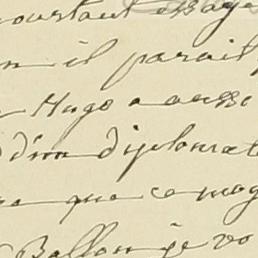 pourtant essaye
il parait
Hugo a aussi
d'un diplomate
que ce mog
Ballon je vo